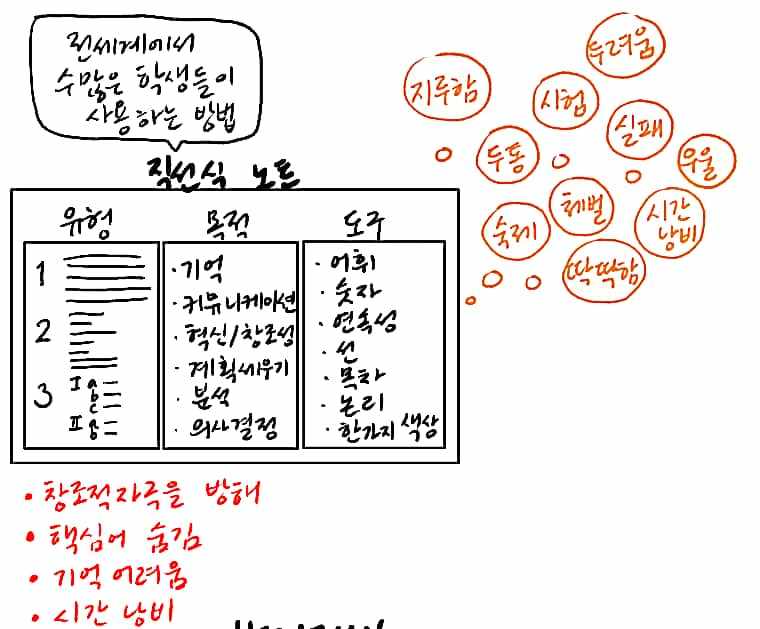 전세계에서
수많은 학생들이
사용하는 방법
직선식 노트
유형
1
2
3
I a
b
c
II a
b
목적
· 기억
· 커뮤니케이션
· 혁신/창조성
· 계획세우기
· 분석
· 의사결정
도구
· 어휘
· 숫자
· 연속성
· 선
· 목차
· 논리
· 한가지 색상
두려움
지루함
시험
실패
두통
우울
체벌
숙제
시간
낭비
딱딱함
• 창조적자극을 방해
• 핵심어 숨김
• 기억 어려움
• 시간 낭비